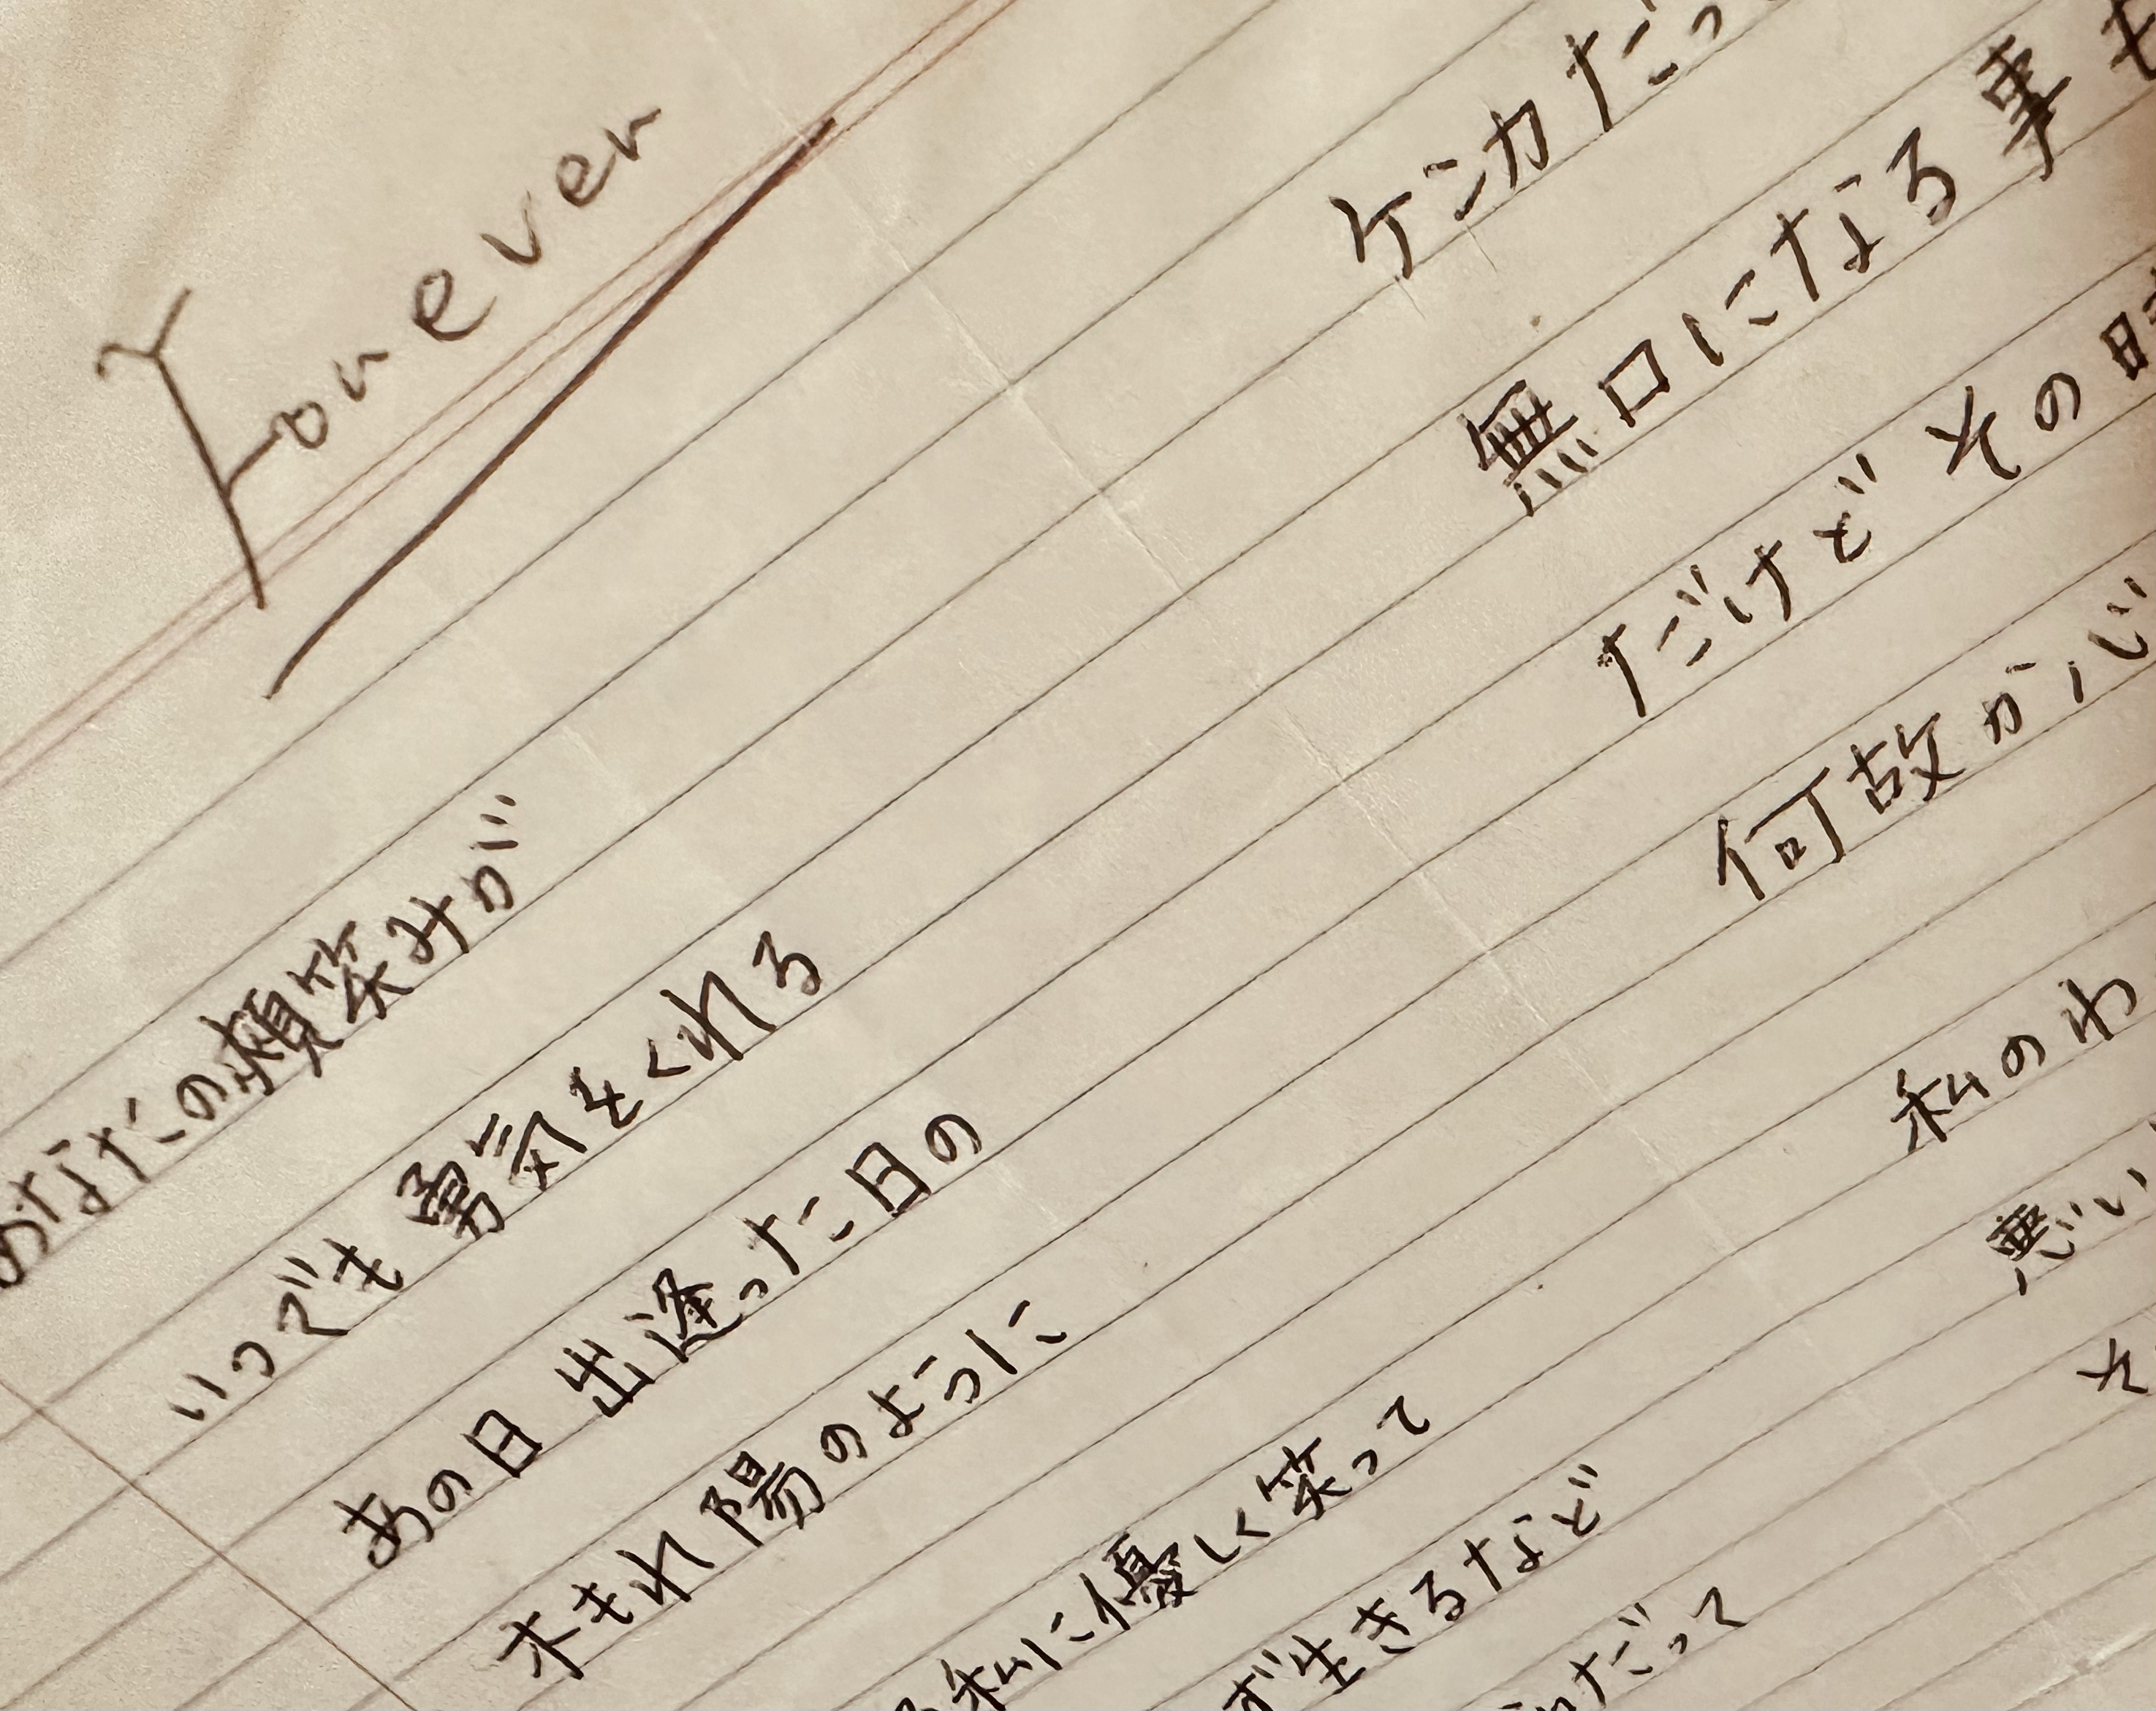 Forever
あなたの頬笑みが
いつでも勇気をくれる
あの日 出逢った日の
木もれ陽のように
私に優しく笑って
ず生きるなど
だって
ケンカだっ
無口になる事も
だけど その時
何故か心
私のわ
悪い
そ